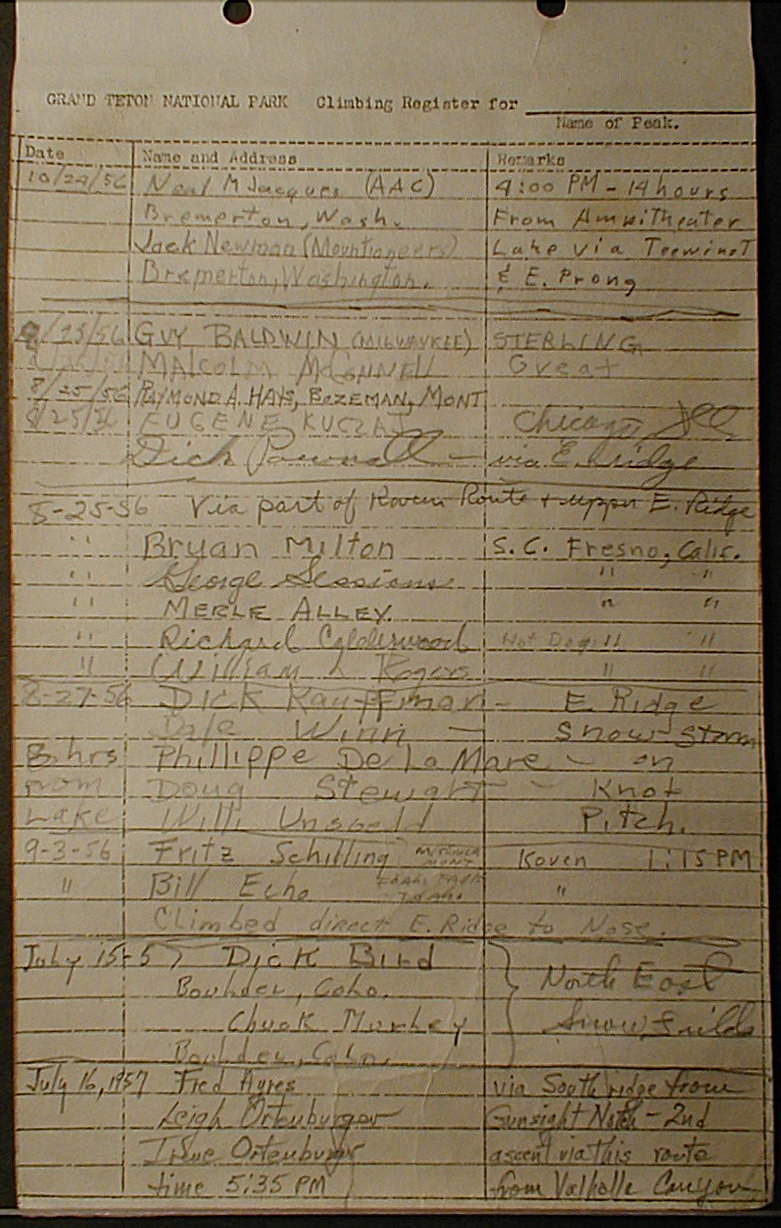 GRAND TETON NATIONAL PARK Climbing Register for
Name of Peak.
Date Name and Address Remarks
10/24/56 Neal M Jacques (AAC) 4:00 PM - 14 hours
Bremerton, Wash. From Ampitheater
Jack Newman (Mountioneers) Lake via Teewinot
Bremerton, Washington. & E. Prong
/25/56 GUY BALDWIN (MILWAUKEE) STERLING
MALCOLM McCONNELL Great
8/25/56 RAYMOND A. HAYS, BOZEMAN, MONT
8/25/56 EUGENE Chicago, Ill
Dick Pownall - via E. ridge
8-25-56 Via part of Koven Route + upper E. Ridge
" Bryan Milton S. C. Fresno, Calif.
" George Sessions " "
" MERLE ALLEY. " "
" Richard Calderwood Hot Dog " "
" William L Rogers " "
8-27-56 Dick Kauffman - E Ridge
Dale Winn - Snow Storm
hrs Phillippe De La Mare - on
from Doug Stewart - Knot
Lake Willi Unsoeld Pitch.
9-3-56 Fritz Schilling MISSOULA MONT Koven 1:15 PM
" Bill Echo IDAHO FALLS IDAHO. "
Climbed direct E. Ridge to Nose.
July 15-57 Dick Bird North East
Boulder, Colo.
Chuck Murley Snow Fields
Boulder, Colo.
July 16, 1957 Fred Ayres via South ridge from
Leigh Ortenburger Gunsight Notch - 2nd
Irene Ortenburger ascent via this route
time 5:35 PM from Valhalla Canyon